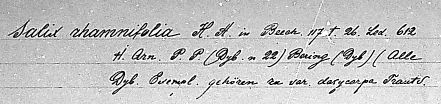 Salix rhamnifolia H. A. in Beech. 117 t. 26. Led. 612
H. Arn. P. P. (Dyb. n 22) Bering (Dyb) (Alle
Dyb. Exempl. gehören zu var. dasycarpa Trautv.